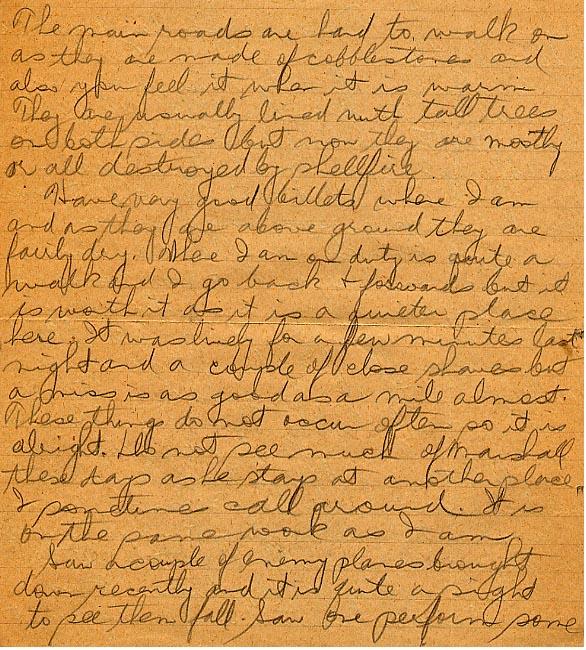 The main roads are hard to walk on
as they are made of cobblestones and
also you feel it when it is warm
They are usually lined with tall trees
on both sides but now they are mostly
or all destroyed by shellfire
Have very good billets where I am
and as they are above ground they are
fairly dry. Where I am on duty is quite a
walk and I go back + forwards but it
is worth it as it is a quieter place
here. It was lively for a few minutes last
night and a couple of close shaves but
a miss is as good as a mile almost.
These things do not occur often so it is
alright. Do not see much of Marshall
these days as he stays at another place
I sometimes call around. It is
on the same work as I am
Saw a couple of enemy planes brought
down recently and it is quite a sight
to see them fall. Saw one perform some